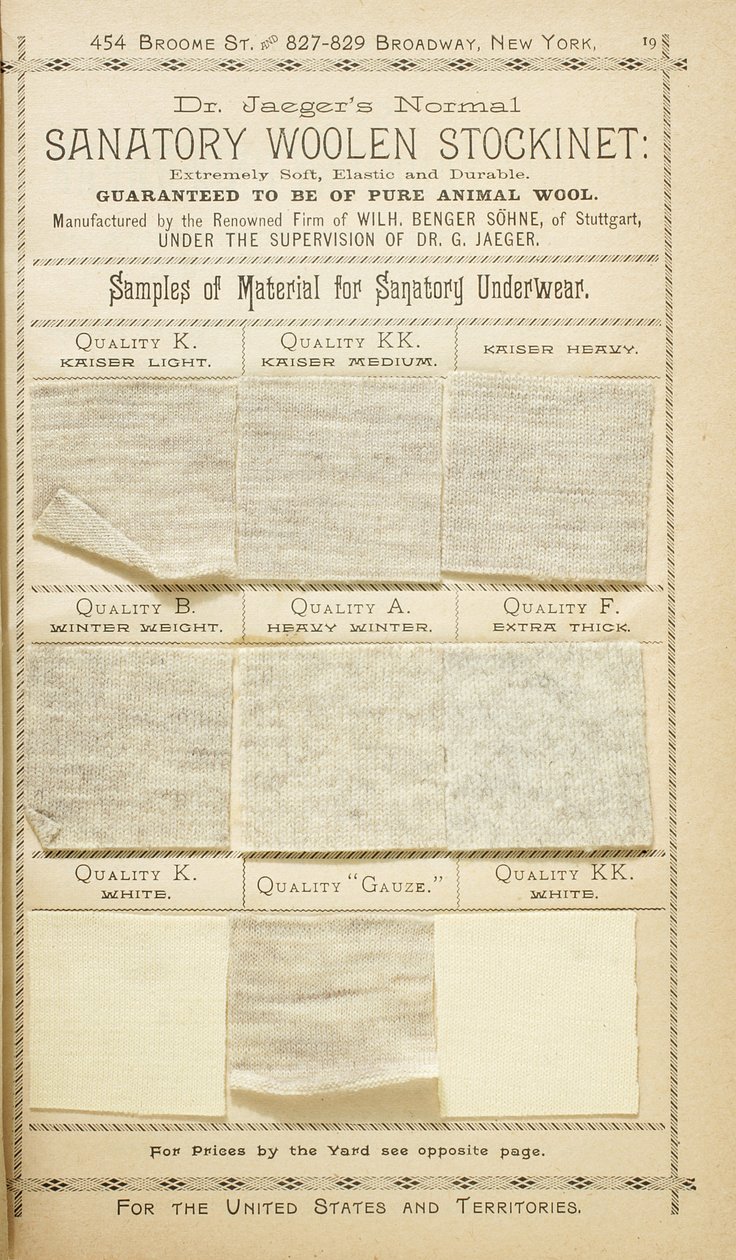 454 Broome St. and 827-829 Broadway, New York, 19
Dr. Jaeger's Normal
SANATORY WOOLEN STOCKINET:
Extremely Soft, Elastic and Durable.
GUARANTEED TO BE OF PURE ANIMAL WOOL.
Manufactured by the Renowned Firm of WILH. BENGER SÖHNE, of Stuttgart,
UNDER THE SUPERVISION OF DR. G. JAEGER.
Samples of Material for Sanatory Underwear.
Quality K.
KAISER LIGHT.
Quality KK.
KAISER MEDIUM.
KAISER HEAVY.
Quality B.
WINTER WEIGHT.
Quality A.
HEAVY WINTER.
Quality F.
EXTRA THICK.
Quality K.
WHITE.
Quality "Gauze."
Quality KK.
WHITE.
For Prices by the Yard see opposite page.
For the United States and Territories.